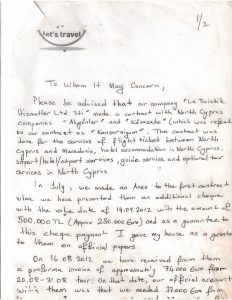 1/2
let's travel
To Whom It May Concern,
Please be advised that or company "Le Turistik
Hizmetler Ltd Sti" made a contract with North Cyprus
companies "Akgünler" and "Kıbrıs
on our contract as "Konsorsiyum". The contract was
done for the services of flight ticket between North
Cyprus and Macedonia, hotel accomodation in North Cyprus,
airport/hotel/airport services, guide service and optional tour
services in North Cyprus
In July, we made an Anex to the first contract
when we have presented them an additional cheque
with the value date of 19.09.2012 with the amount of
500.000 TL (Approx 230.000 Euro) and as a guarantee to
this cheque payment I gave my house as a grante
to them on official papers
On 16.08.2012 we have received from them
a proforma invoice of approximately 74.000 Euro from
20.08-31.08 tour. On that date, our official account
with them was that we needed 37.000 Euro from